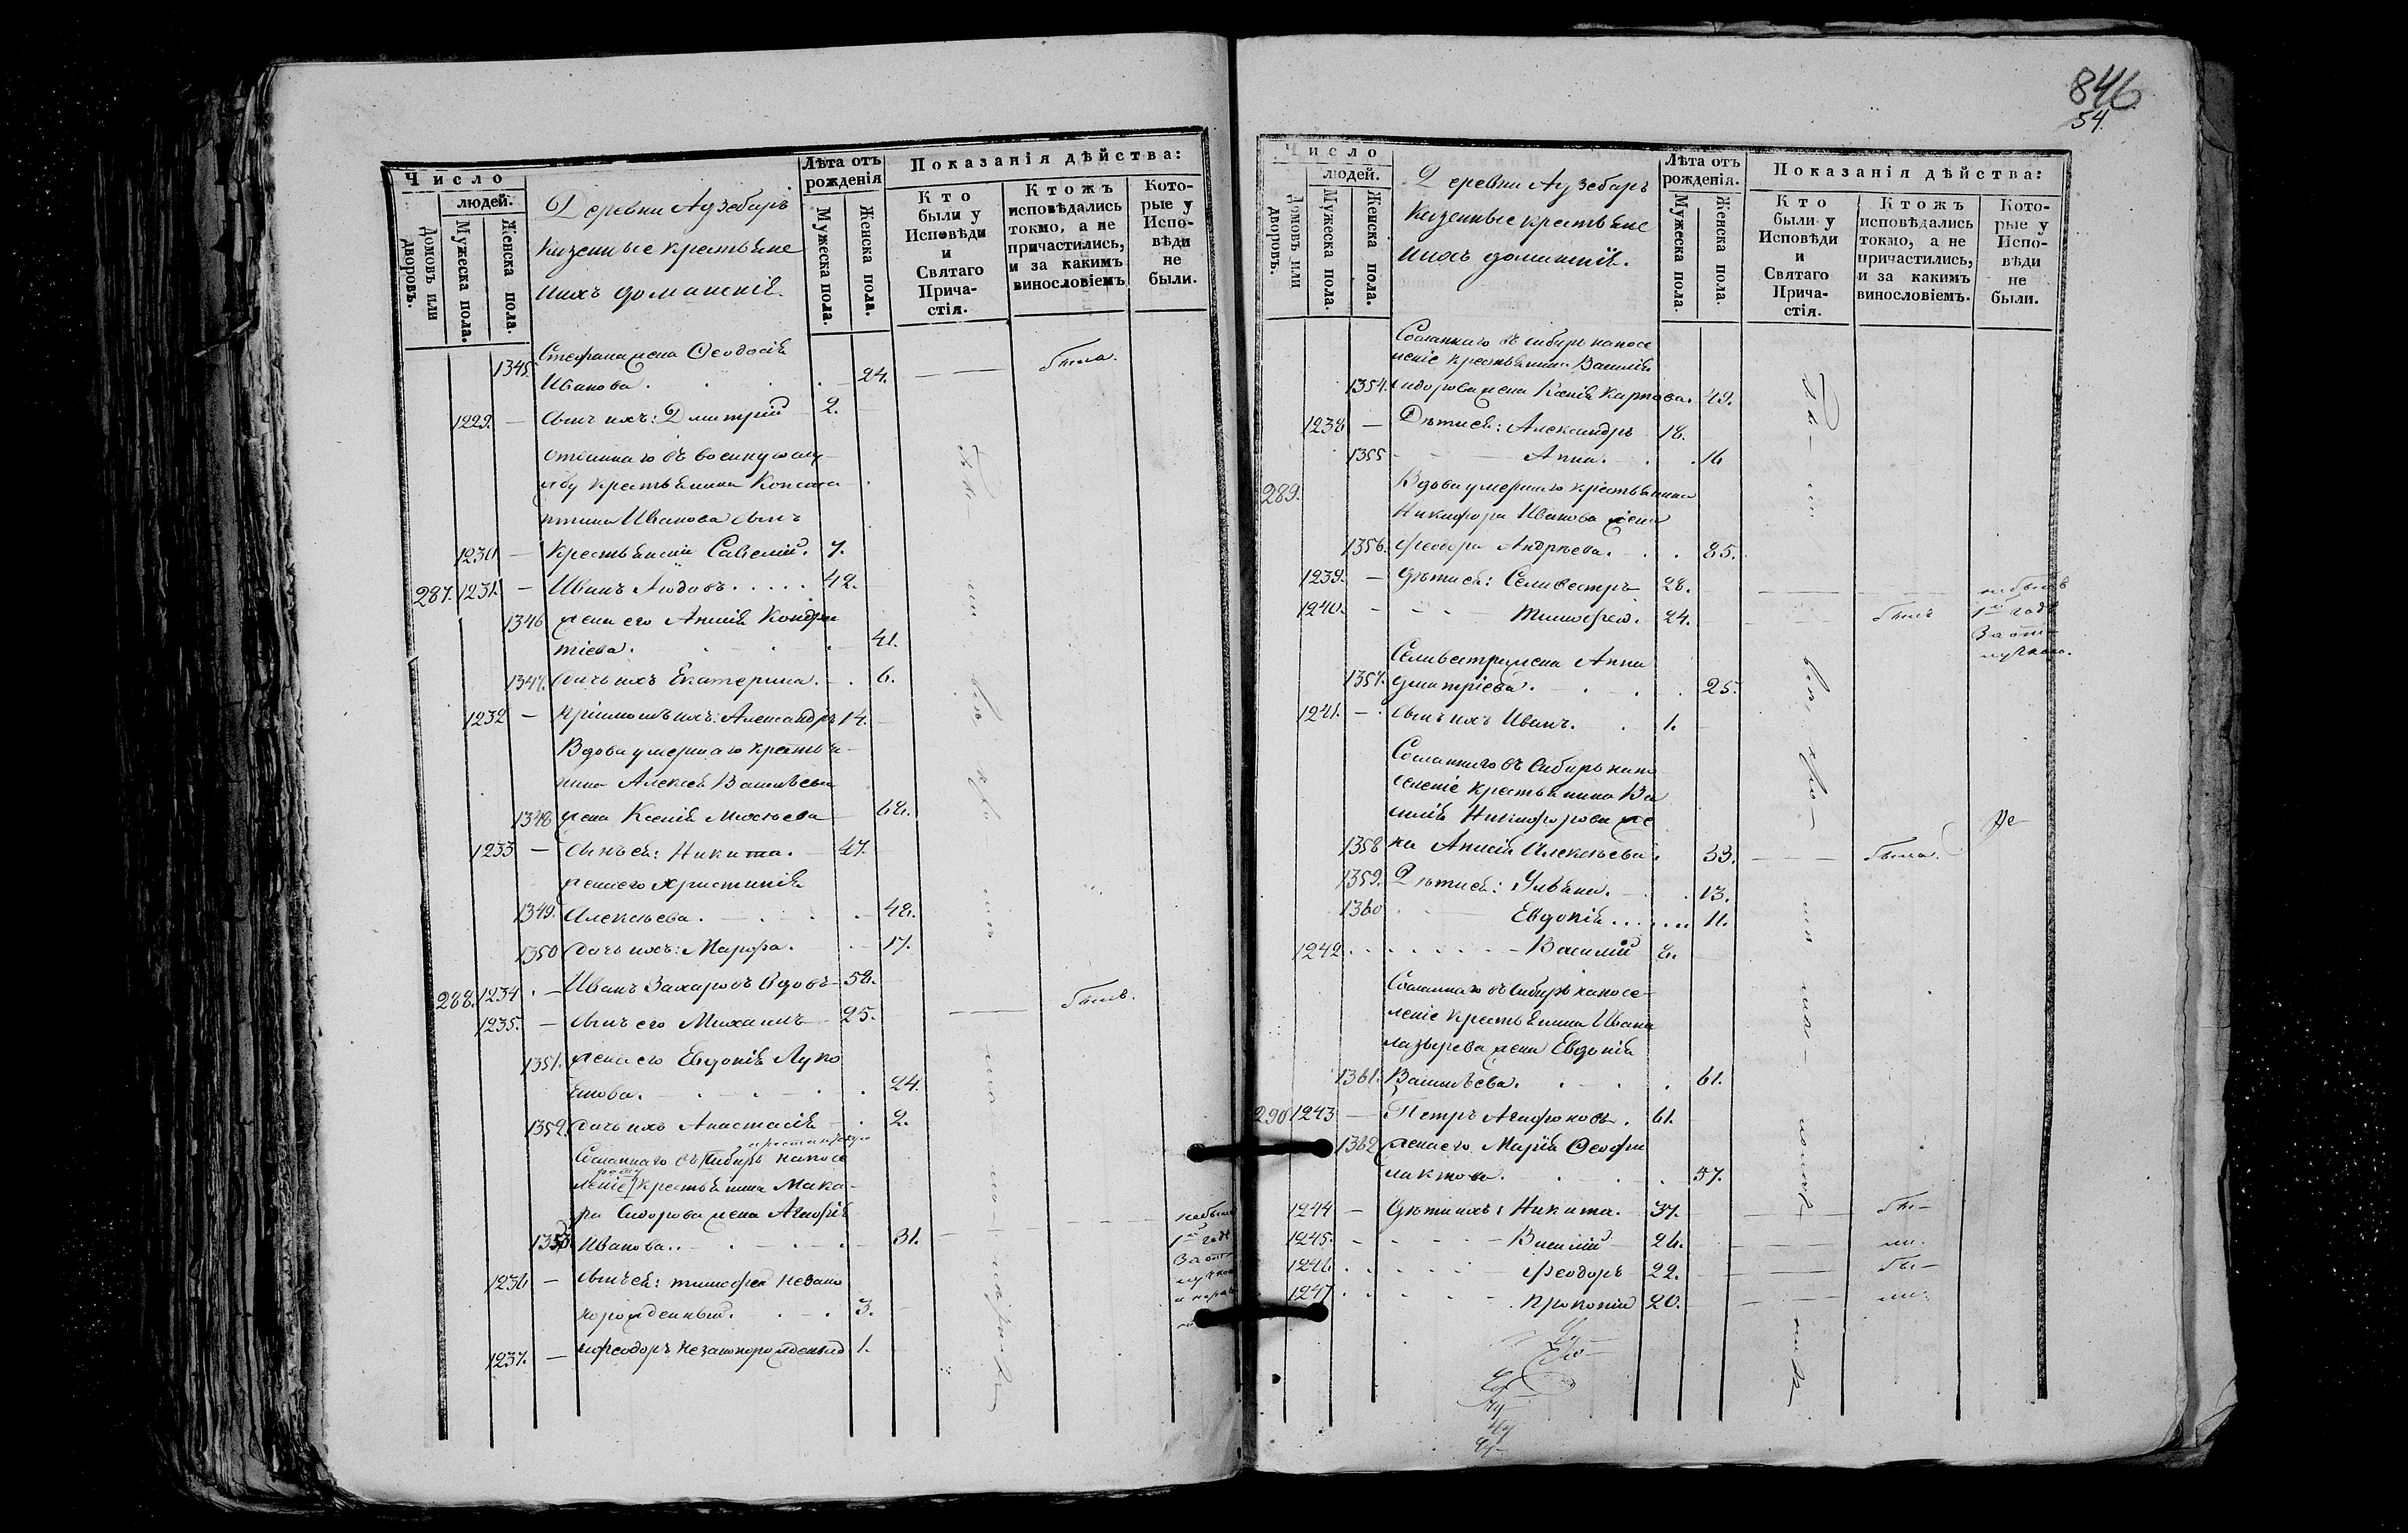 846
54.
Число
людей.
Домовъ или дворовъ.
Мужеска пола.
Женска пола.
Деревни Аузебаръ
казенные крестьяне
и ихъ домашніе.
Лѣта отъ
рожденія
Мужеска пола.
Женска пола.
Показанія дѣйства:
Кто
были у
Исповѣди
и
Святаго
Прича-
стія.
Ктожъ
исповѣдались
токмо, а не
причастились,
и за какимъ
винословіемъ
Кото-
рые у
Испо-
вѣди
не
были.
Стефана жена Ѳеодосія
1345. Иванова. 24. была.
1229. — сынъ ихъ: Дмитрій 2.
отданнаго въ военную слу-
жбу крестьянина Конста
нтина Иванова сынъ
1230 — крестьянинъ Савелій. 7.
287. 1231. — Иванъ 42.
1346 жена его Анисія Кондра
тіева. 41.
1347. дочь ихъ Екатерина. 6.
1232 — Александръ 14.
Вдова умершаго крестья-
нина Алексѣя Васильева
1348 жена Ксенія 68.
1233 — сынъ ея: Никита. 47.
жена его Христинія
1349. Алексѣева. 48.
1350 дочь ихъ: Марѳа. 17.
288. 1234. — Иванъ Захаровъ 58.
1235. — сынъ его Михаилъ 25. былъ.
1351. жена его Евдокія Лукo
янова. 24.
1352. дочь ихъ Анастасія 2.
Сосланнаго въ Сибирь на посе
леніе крестьянина Мака-
ра Сидорова жена Агафія
1353 Иванова. 31. не была
1й годъ
За от-
лучкою
1236 — сынъ ея: Тимофей незако
норожденный. 3.
1237. — Ѳеодоръ незаконорожденый 1.
Число
людей.
Домовъ или дворовъ.
Мужеска пола.
Женска пола.
Деревни Аузебаръ
казенные крестьяне
и ихъ домашніе.
Лѣта отъ
рожденія.
Мужеска пола.
Женска пола.
Показанія дѣйства:
Кто
были у
Исповѣди
и
Святаго
Прича-
стія.
Ктожъ
исповѣдались
токмо, а не
причастились,
и за какимъ
винословіемъ.
Кото-
рые у
Испо-
вѣди
не
были.
Сосланнаго въ Сибирь на посе
леніе крестьянина Василія
1354. Сидорова жена Ксенія Карпова. 49.
1238 — Дѣти ея: Александръ 18.
1355 Анна. 16
289. Вдова умершаго крестьянина
Никифора Иванова жена
1356. Ѳеодора Андрѣева. 85.
1239. — Дѣти ея: Селивестръ 28. не былъ
1240. Тимофей. 24. былъ 1й годъ
За от-
лучкою.
Селивестра жена Анна
1357. Дмитріева. 25.
1241. — сынъ ихъ Иванъ. 1.
Сосланнаго въ Сибирь на по
селеніе крестьянина Ва
силія Никифорова же
1358 на Анисія Алексѣева. 33. была.
1359. Дѣти ея: Ульяна. 13.
1360 Евдокія 11.
1242 Василій 8.
Сосланнаго въ Сибирь на посе-
леніе крестьянина Ивана
Лазырева жена Евдокія
1361. Васильева. 61.
290 1243 — Петръ Агафоновъ. 61.
1362 жена его Марія Ѳеофи
лактова. 57.
1244 — Дѣти ихъ: Никита. 37. бы-
1245. Василій 26. ли.
1246 Ѳеодоръ 22. бы-
1247 Прокопій 20. ли.